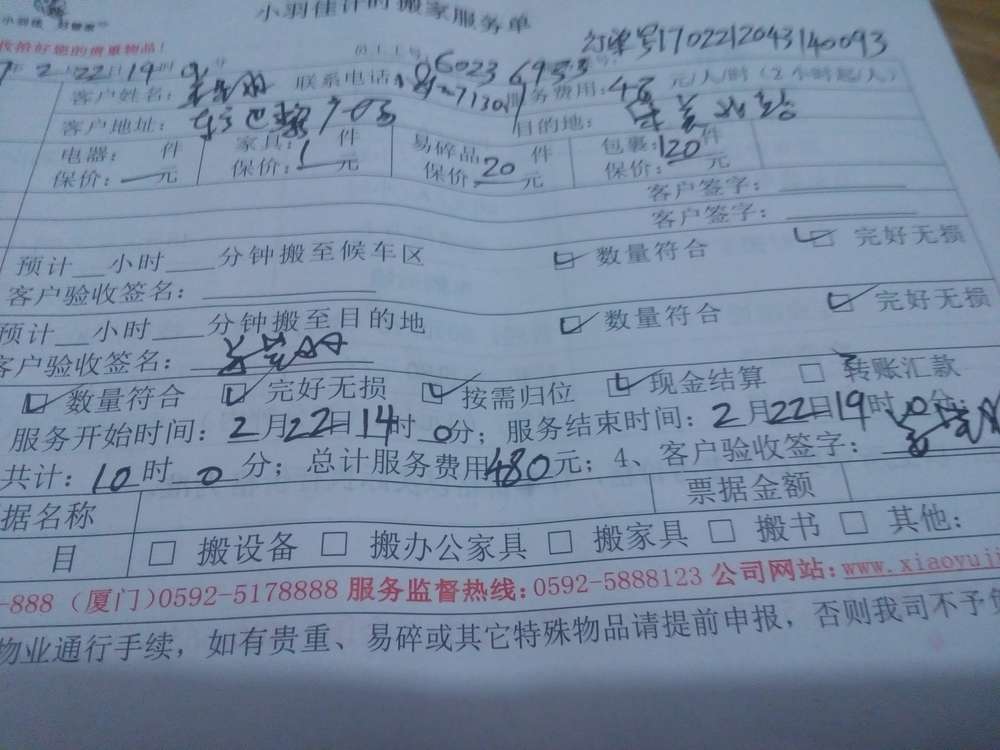 小羽佳计时搬家服务单
小羽佳 好管家
收拾好您的贵重物品!
订单号1702212043140093
2 22日19时
客户姓名: 联系电话: 服务费用:48元/人/时(2小时起/人)
客户地址: 目的地:
电器: 件 家具: 件 易碎品 件 包裹: 件
保价:—元 保价:1元 保价:20元 保价:120元
客户签字:
客户签字:
预计__小时___分钟搬至候车区 ☑数量符合 ☑完好无损
客户验收签名:
预计__小时___分钟搬至目的地 ☑数量符合 ☑完好无损
客户验收签名:
☑数量符合 ☑完好无损 ☑按需归位 ☑现金结算 □转账汇款
服务开始时间:2月22日14时0分;服务结束时间:2月22日19时0分;
共计:10时0分;总计服务费用480元;4、客户验收签字:
据名称 票据金额
目 □搬设备 □搬办公家具 □搬家具 □搬书 □其他:
-888(厦门)0592-5178888 服务监督热线:0592-5888123 公司网站:www.xiaoyuji
物业通行手续,如有贵重、易碎或其它特殊物品请提前申报,否则我司不予